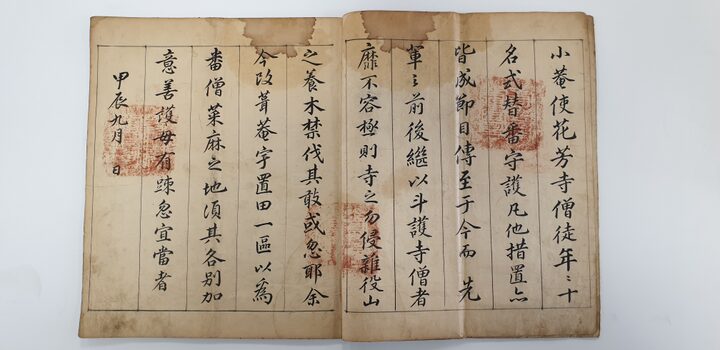 小菴使花芳寺僧徒年〻十
名式替番守護凡他措置亦
皆成節目傳至于今而 先
軰之前後繼以斗護寺僧者
靡不容極則寺之勿侵雜役山
之養木禁伐其敢或忽耶余
今改葺菴宇置田一區以為
番僧菜麻之地須其各別加
意善護毋有踈忽宜當者
甲辰九月 日